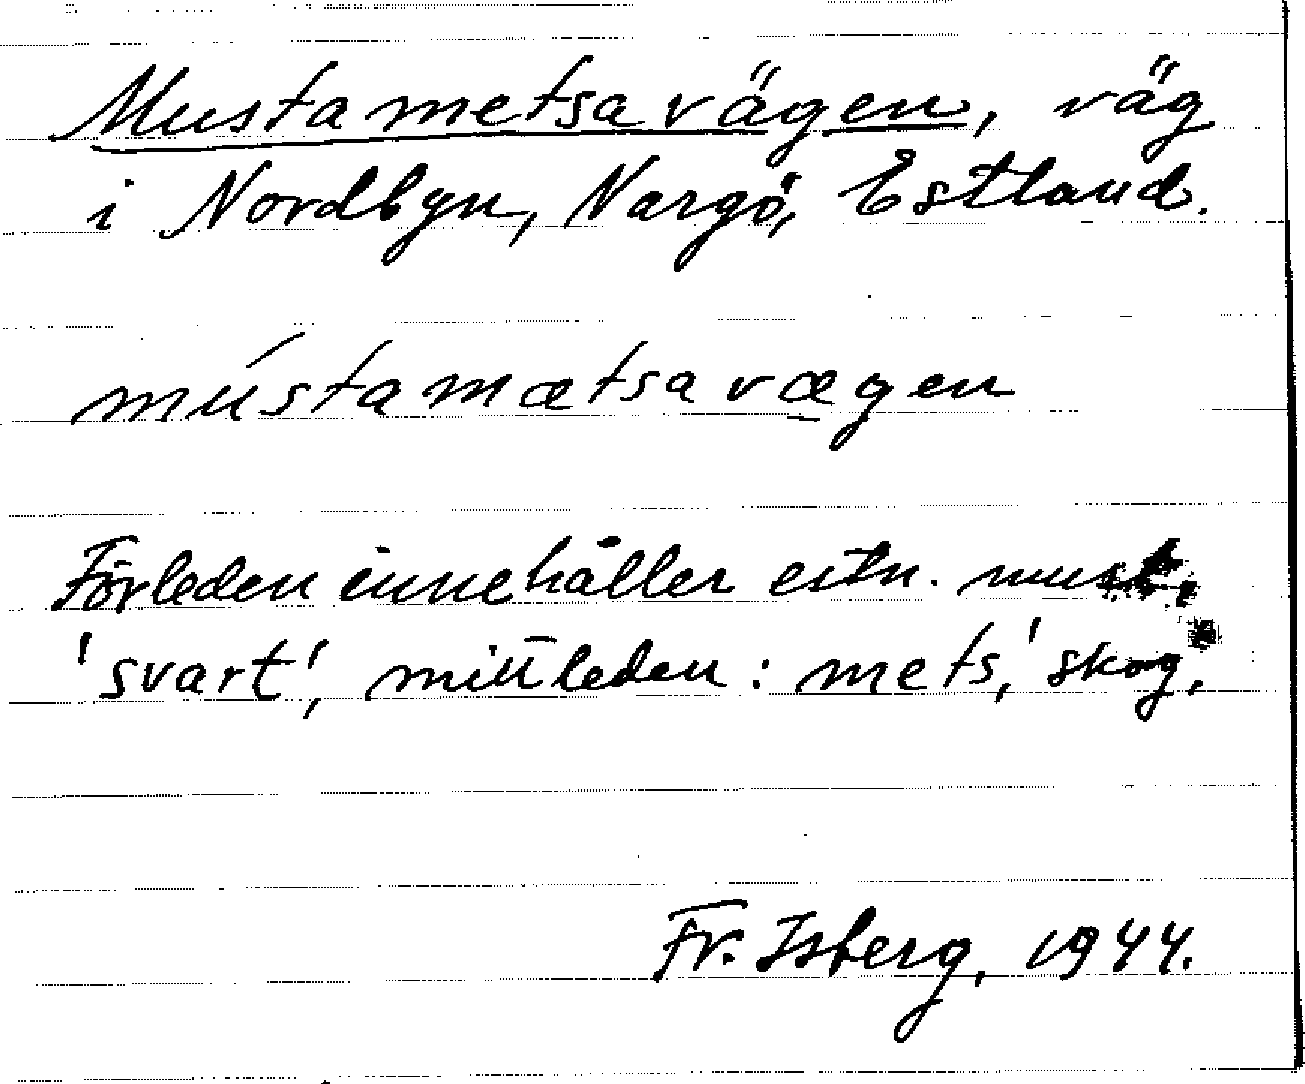 Mustametsavägen, väg
i Nordbyn, Nargö, Estland.
mústamætsavægen
Förleden innehåller estn. must,
'svart', mittleden: mets, 'skog'.
Fr. Isberg, 1944.